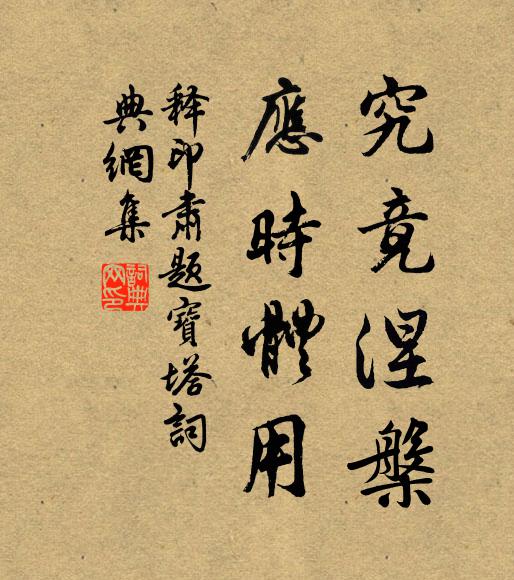 究竟涅槃
應時體用
釋印肅題寶塔詞
典網集
詞典網印